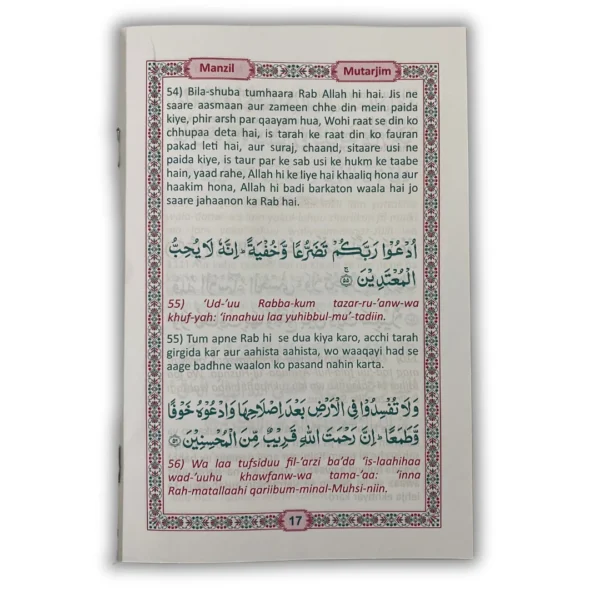 Manzil
Mutarjim
54) Bila-shuba tumhaara Rab Allah hi hai. Jis ne
saare aasmaan aur zameen chhe din mein paida
kiye, phir arsh par qaayam hua, Wohi raat se din ko
chhupaa deta hai, is tarah ke raat din ko fauran
pakad leti hai, aur suraj, chaand, sitaare usi ne
paida kiye, is taur par ke sab usi ke hukm ke taabe
hain, yaad rahe, Allah hi ke liye hai khaaliq hona aur
haakim hona, Allah hi badi barkaton waala hai jo
saare jahaanon ka Rab hai.
اُدْعُوْا رَبَّكُمْ تَضَرُّعًا وَّخُفْيَةً ؕ اِنَّهٗ لَا يُحِبُّ
الْمُعْتَدِيْنَ ۝۵۵
55) ‘Ud-’uu Rabba-kum tazar-ru-’anw-wa
khuf-yah: ‘innahuu laa yuhibbul-mu’-tadiin.
55) Tum apne Rab hi se dua kiya karo, acchi tarah
girgida kar aur aahista aahista, wo waaqayi had se
aage badhne waalon ko pasand nahin karta.
وَلَا تُفْسِدُوْا فِي الْاَرْضِ بَعْدَ اِصْلَاحِهَا وَادْعُوْهُ خَوْفًا
وَّطَمَعًا ؕ اِنَّ رَحْمَتَ اللّٰهِ قَرِيْبٌ مِّنَ الْمُحْسِنِيْنَ ۝۵۶
56) Wa laa tufsiduu fil-’arzi ba’da ‘is-laahihaa
wad-’uuhu khawfanw-wa tama-’aa: ‘inna
Rah-matallaahi qariibum-minal-Muhsi-niin.
17